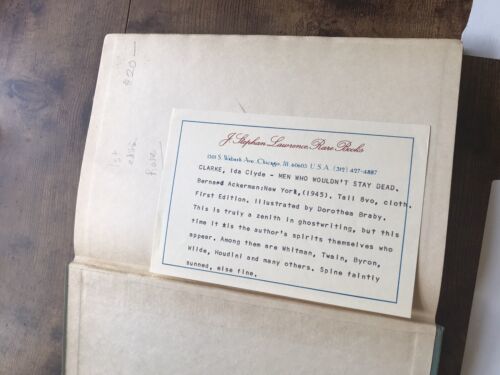 $20—
1st
edition
fake
J. Stephan Lawrence, Rare Books
1301 S. Wabash Ave., Chicago, Ill. 60605 U.S.A. (312) 427-4887
CLARKE, Ida Clyde - MEN WHO WOULDN'T STAY DEAD.
Bernard Ackerman:New York,(1945). Tall 8vo, cloth.
First Edition. Illustrated by Dorothea Braby.
This is truly a zenith in ghostwriting, but this
time it is the author's spirits themselves who
appear. Among them are Whitman, Twain, Byron,
Wilde, Houdini and many others. Spine faintly
sunned, else fine.